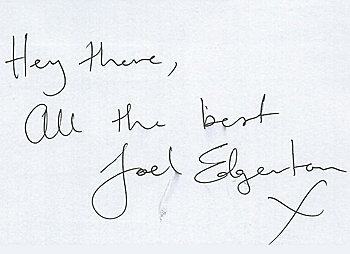 Hey there,
All the best
Joel Edgerton
X